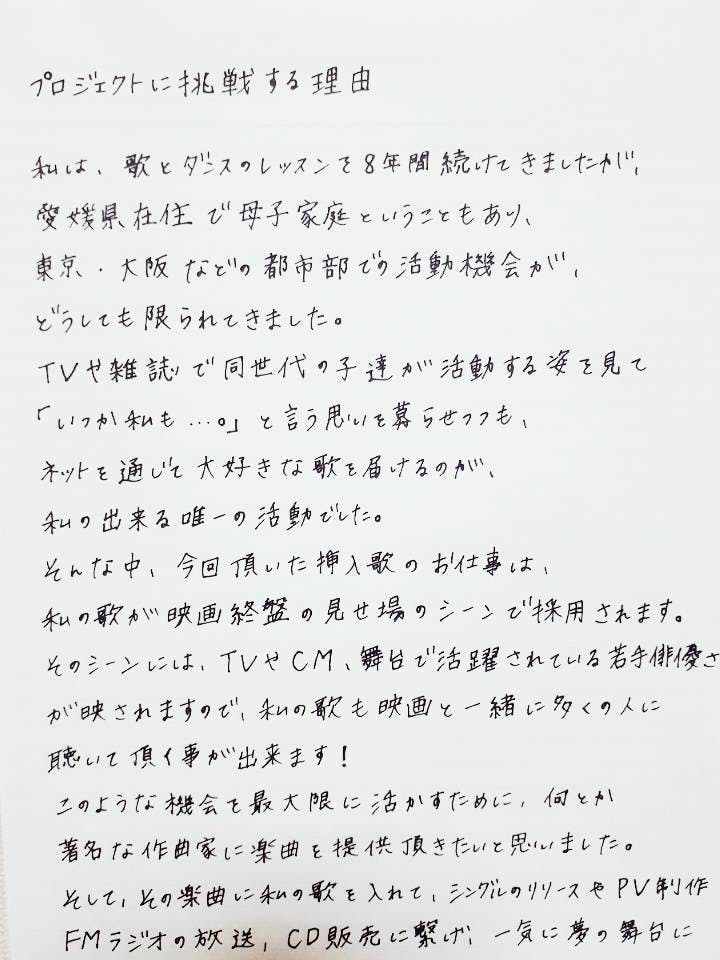 プロジェクトに挑戦する理由
私は、歌とダンスのレッスンを8年間続けてきましたが、
愛媛県在住で母子家庭ということもあり、
東京・大阪などの都市部での活動機会が、
どうしても限られてきました。
TVや雑誌で同世代の子達が活動する姿を見て
「いつか私も…。」と言う思いを募らせつつも、
ネットを通じて大好きな歌を届けるのが、
私の出来る唯一の活動でした。
そんな中、今回頂いた挿入歌のお仕事は、
私の歌が映画終盤の見せ場のシーンで採用されます。
そのシーンには、TVやCM、舞台で活躍されている若手俳優さ
が映されますので、私の歌も映画と一緒に多くの人に
聴いて頂く事が出来ます!
このような機会を最大限に活かすために、何とか
著名な作曲家に楽曲を提供頂きたいと思いました。
そして、その楽曲に私の歌を入れて、シングルのリリースやPV制作
FMラジオの放送、CD販売に繋げ、一気に夢の舞台に